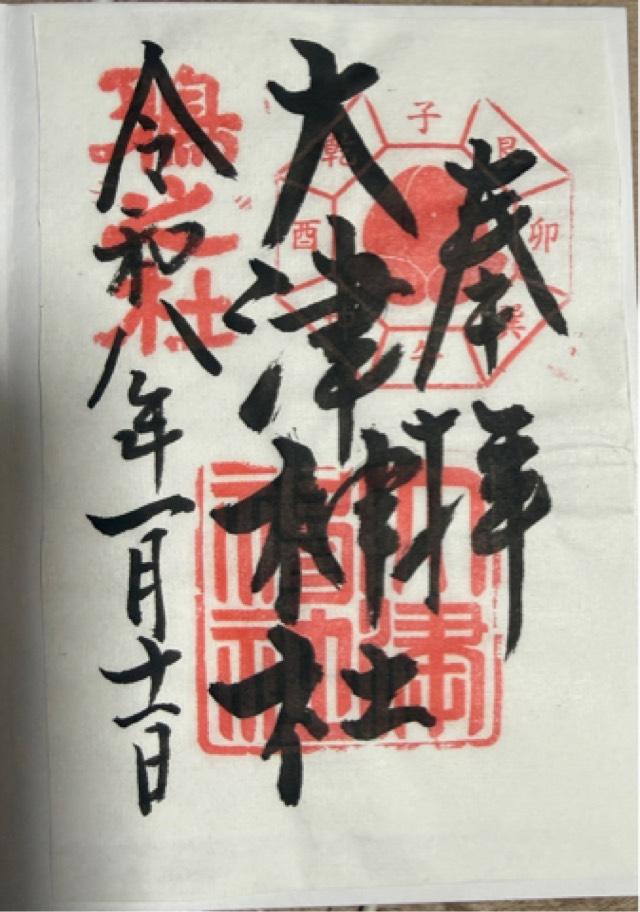 奉拝
大津神社
令和八年一月十一日
子
艮
卯
巽
午
酉
乾
大津
神社